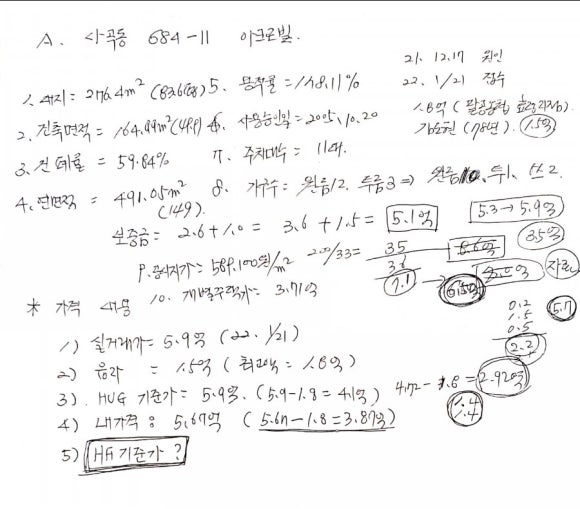 A. 사곡동 684-11 아크로빌.
21. 12.17 원인
22. 1/21 접수
1. 대지 = 276.4m² (83.6평)
5. 용적률 = 148.11%
1.8억 (
2. 건축면적 = 164.99m² (49.9)
6. 사용승인일 = 2005.10.20
(78년). 1.5억
3. 건폐율 = 59.84%
7. 주차대수 = 11대.
4. 연면적 = 491.05m² (149).
8. 가구수 = 원룸12, 투룸3 ⇒ 원룸10, 투1, 쓰2.
보증금 = 2.6+1.0 = 3.6+1.5 = 5.1억
5.3→5.9억
3.5억
9. 공시지가 = 589,100원/m²
200/33=
35
36
7.1
10. 개별주택가 = 3.71억
* 가격 내용
0.2
1.5
0.5
2.2
5.7
1) 실거래가 = 5.9억 (22. 1/21)
2) 융자 = 1.5억 (최고액 = 1.8억)
3). HUG 기준가 = 5.9억. (5.9-1.8=4.1억)
4.72-1.8=2.92억
1.4
1.4
4) 내가격 : 5.67억 (5.67-1.8=3.87억)
5) HF 기준가 ?